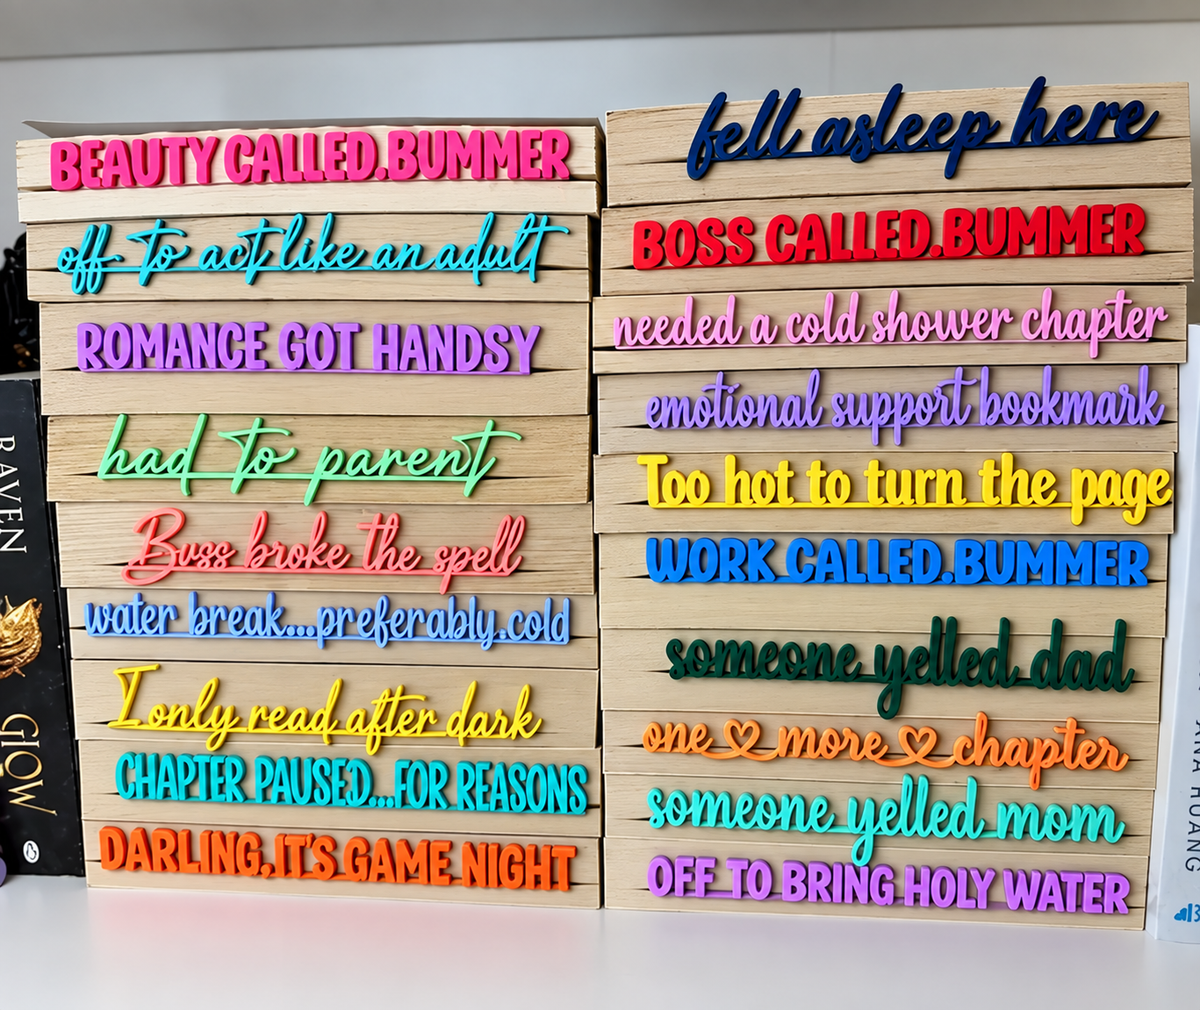 BEAUTY CALLED.BUMMER
off to act like an adult
ROMANCE GOT HANDSY
had to parent
Buss broke the spell
water break...preferably.cold
I only read after dark
CHAPTER PAUSED...FOR REASONS
DARLING,IT'S GAME NIGHT
fell asleep here
BOSS CALLED.BUMMER
needed a cold shower chapter
emotional support bookmark
Too hot to turn the page
WORK CALLED.BUMMER
someone yelled dad
one more chapter
someone yelled mom
OFF TO BRING HOLY WATER
RAVEN
GLOW
HUANG